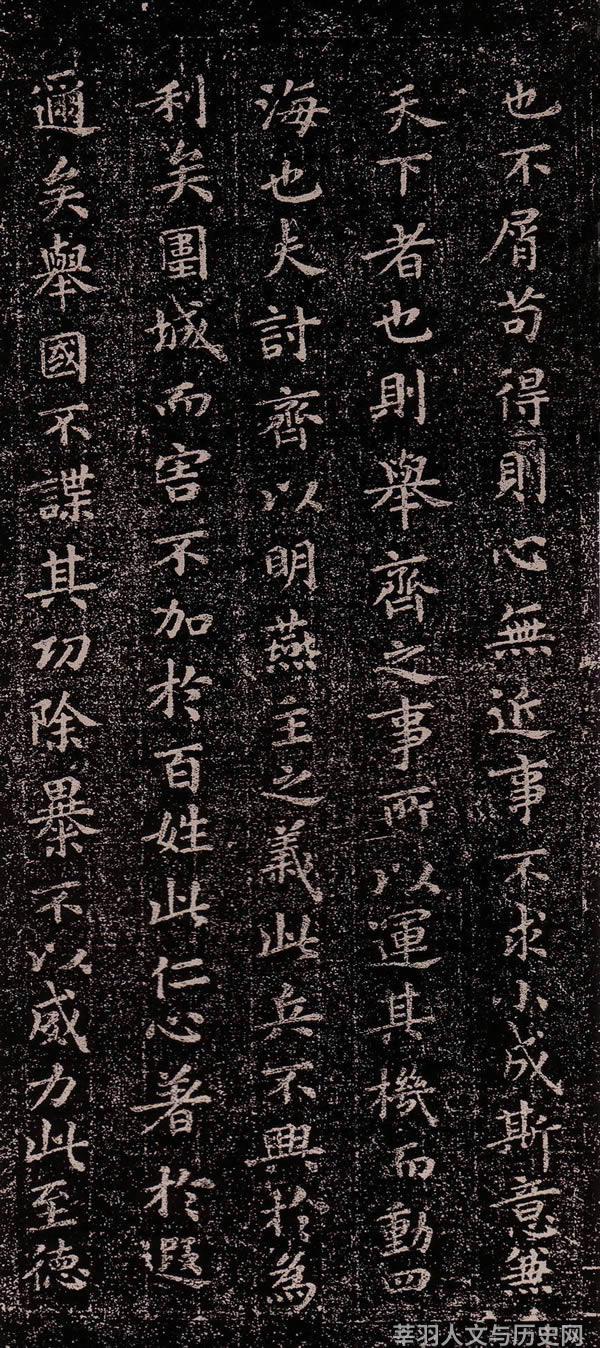 也不屑苟得則心無近事不求小成斯意兼
天下者也則舉齊之事所以運其機而動四
海也夫討齊以明燕主之義此兵不興於為
利矣圍城而害不加於百姓此仁心著於遐
邇矣舉國不謀其功除暴不以威力此至德
莘羽人文与历史网